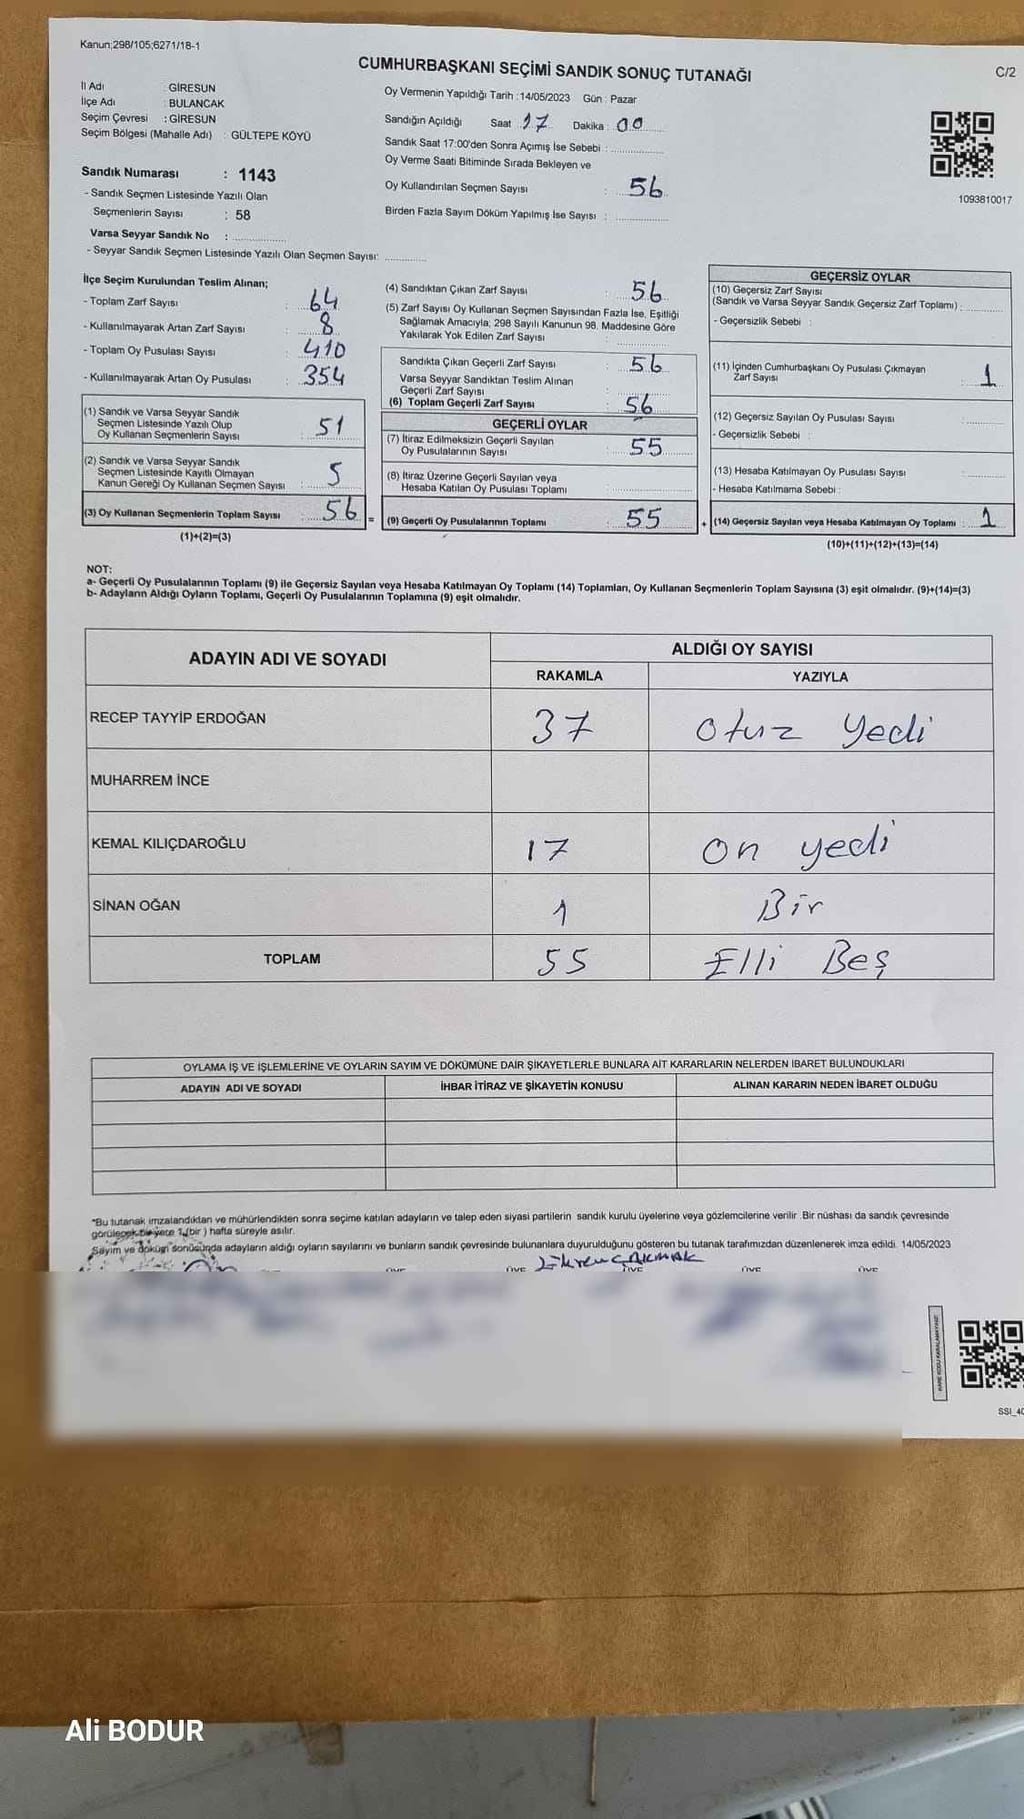 Kanun;298/105;6271/18-1
CUMHURBAŞKANI SEÇİMİ SANDIK SONUÇ TUTANAĞI
C/2
İl Adı : GİRESUN
İlçe Adı : BULANCAK
Seçim Çevresi : GİRESUN
Seçim Bölgesi (Mahalle Adı) : GÜLTEPE KÖYÜ
Sandık Numarası : 1143
- Sandık Seçmen Listesinde Yazılı Olan
Seçmenlerin Sayısı : 58
Varsa Seyyar Sandık No :
- Seyyar Sandık Seçmen Listesinde Yazılı Olan Seçmen Sayısı:
Oy Vermenin Yapıldığı Tarih :14/05/2023 Gün : Pazar
Sandığın Açıldığı Saat 17 Dakika : 00
Sandık Saat 17:00'den Sonra Açımış İse Sebebi :
Oy Verme Saati Bitiminde Sırada Bekleyen ve
Oy Kullandırılan Seçmen Sayısı : 56
Birden Fazla Sayım Döküm Yapılmış İse Sayısı :
1093810017
İlçe Seçim Kurulundan Teslim Alınan;
- Toplam Zarf Sayısı : 64
- Kullanılmayarak Artan Zarf Sayısı : 8
- Toplam Oy Pusulası Sayısı : 410
- Kullanılmayarak Artan Oy Pusulası : 354
(1) Sandık ve Varsa Seyyar Sandık
Seçmen Listesinde Yazılı Olup
Oy Kullanan Seçmenlerin Sayısı : 51
(2) Sandık ve Varsa Seyyar Sandık
Seçmen Listesinde Kayıtlı Olmayan
Kanun Gereği Oy Kullanan Seçmen Sayısı : 5
(3) Oy Kullanan Seçmenlerin Toplam Sayısı : 56 =
(1)+(2)=(3)
(4) Sandıktan Çıkan Zarf Sayısı : 56
(5) Zarf Sayısı Oy Kullanan Seçmen Sayısından Fazla İse, Eşitliği
Sağlamak Amacıyla; 298 Sayılı Kanunun 98. Maddesine Göre
Yakılarak Yok Edilen Zarf Sayısı :
Sandıkta Çıkan Geçerli Zarf Sayısı : 56
Varsa Seyyar Sandıktan Teslim Alınan
Geçerli Zarf Sayısı :
(6) Toplam Geçerli Zarf Sayısı : 56
GEÇERLİ OYLAR
(7) İtiraz Edilmeksizin Geçerli Sayılan
Oy Pusulalarının Sayısı : 55
(8) İtiraz Üzerine Geçerli Sayılan veya
Hesaba Katılan Oy Pusulası Toplamı :
(9) Geçerli Oy Pusulalarının Toplamı : 55 +
GEÇERSİZ OYLAR
(10) Geçersiz Zarf Sayısı
(Sandık ve Varsa Seyyar Sandık Geçersiz Zarf Toplamı) :
- Geçersizlik Sebebi :
(11) İçinden Cumhurbaşkanı Oy Pusulası Çıkmayan
Zarf Sayısı : 1
(12) Geçersiz Sayılan Oy Pusulası Sayısı :
- Geçersizlik Sebebi :
(13) Hesaba Katılmayan Oy Pusulası Sayısı :
- Hesaba Katılmama Sebebi :
(14) Geçersiz Sayılan veya Hesaba Katılmayan Oy Toplamı : 1
(10)+(11)+(12)+(13)=(14)
NOT:
a- Geçerli Oy Pusulalarının Toplamı (9) ile Geçersiz Sayılan veya Hesaba Katılmayan Oy Toplamı (14) Toplamları, Oy Kullanan Seçmenlerin Toplam Sayısına (3) eşit olmalıdır. (9)+(14)=(3)
b- Adayların Aldığı Oyların Toplamı, Geçerli Oy Pusulalarının Toplamına (9) eşit olmalıdır.
ADAYIN ADI VE SOYADI
ALDIĞI OY SAYISI
RAKAMLA YAZIYLA
RECEP TAYYİP ERDOĞAN 37 Otuz Yedi
MUHARREM İNCE
KEMAL KILIÇDAROĞLU 17 On yedi
SİNAN OĞAN 1 Bir
TOPLAM 55 Elli Beş
OYLAMA İŞ VE İŞLEMLERİNE VE OYLARIN SAYIM VE DÖKÜMÜNE DAİR ŞİKAYETLERLE BUNLARA AİT KARARLARIN NELERDEN İBARET BULUNDUKLARI
ADAYIN ADI VE SOYADI İHBAR İTİRAZ VE ŞİKAYETİN KONUSU ALINAN KARARIN NEDEN İBARET OLDUĞU
*Bu tutanak imzalandıktan ve mühürlendikten sonra seçime katılan adayların ve talep eden siyasi partilerin sandık kurulu üyelerine veya gözlemcilerine verilir. Bir nüshası da sandık çevresinde
görülecek bir yere 1 (bir) hafta süreyle asılır.
Sayım ve döküm sonucunda adayların aldığı oyların sayılarını ve bunların sandık çevresinde bulunanlara duyurulduğunu gösteren bu tutanak tarafımızdan düzenlenerek imza edildi. 14/05/2023
ÜYE ÜYE ÜYE ÜYE ÜYE
Ali BODUR